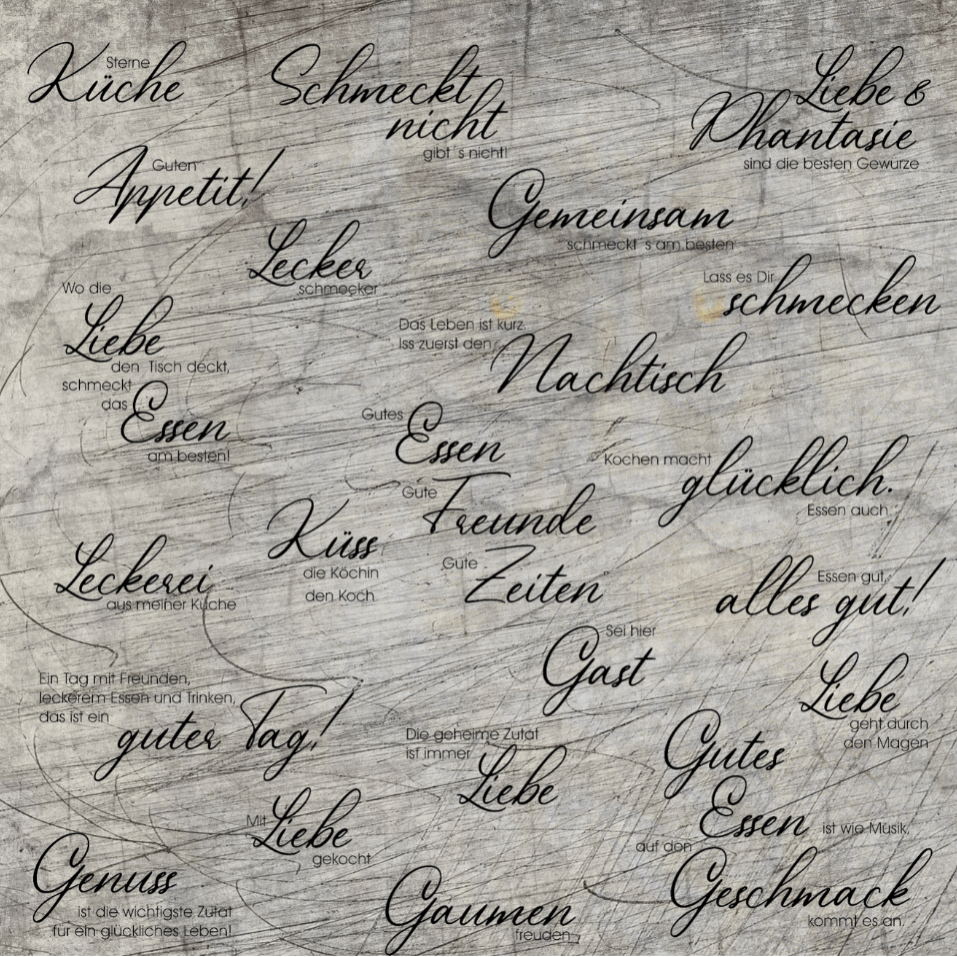 Sterne
Küche
Schmeckt
nicht
gibt´s nicht!
Liebe &
Phantasie
sind die besten Gewürze
Guten
Appetit!
Gemeinsam
schmeckt´s am besten
Lecker
schmecker
Lass es Dir
schmecken
Wo die
Liebe
den Tisch deckt,
schmeckt
das Essen
am besten!
Das Leben ist kurz.
Iss zuerst den
Nachtisch
Gutes
Essen
Gute
Freunde
Gute
Zeiten
Kochen macht
glücklich.
Essen auch.
Küss
die Köchin
den Koch
Leckerei
aus meiner Küche
Essen gut,
alles gut!
Sei hier
Gast
Ein Tag mit Freunden,
leckerem Essen und Trinken,
das ist ein
guter Tag!
Liebe
geht durch
den Magen
Die geheime Zutat
ist immer
Liebe
Gutes
Essen ist wie Musik,
auf den
Geschmack
kommt es an.
Mit
Liebe
gekocht
Genuss
ist die wichtigste Zutat
für ein glückliches Leben!
Gaumen
freuden